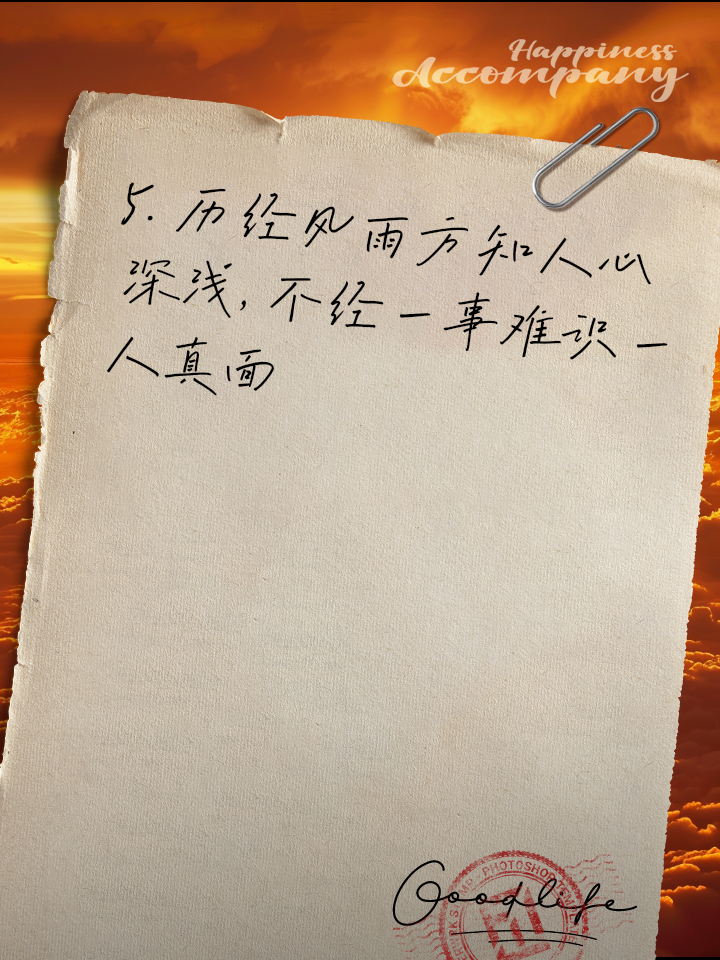 Happiness
Accompany
5. 历经风雨方知人心
深浅，不经一事难识一
人真面
PHOTOSHOP
Goodlife